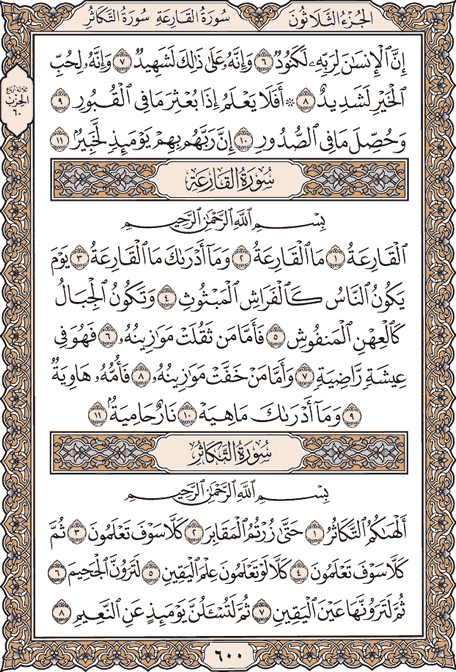 الجزء الثلاثون سورة القارعة سورة التكاثر
ثلاثة أرباع
الحزب
٦٠
إِنَّ ٱلْإِنسَٰنَ لِرَبِّهِۦ لَكَنُودٌ ٦ وَإِنَّهُۥ عَلَىٰ ذَٰلِكَ لَشَهِيدٌ ٧ وَإِنَّهُۥ لِحُبِّ
ٱلْخَيْرِ لَشَدِيدٌ ٨ ۞ أَفَلَا يَعْلَمُ إِذَا بُعْثِرَ مَا فِى ٱلْقُبُورِ ٩
وَحُصِّلَ مَا فِى ٱلصُّدُورِ ١٠ إِنَّ رَبَّهُم بِهِمْ يَوْمَئِذٍ لَّخَبِيرٌۢ ١١
سُورَةُ القَارِعَةِ
بِسْمِ ٱللَّهِ ٱلرَّحْمَٰنِ ٱلرَّحِيمِ
ٱلْقَارِعَةُ ١ مَا ٱلْقَارِعَةُ ٢ وَمَآ أَدْرَىٰكَ مَا ٱلْقَارِعَةُ ٣ يَوْمَ
يَكُونُ ٱلنَّاسُ كَٱلْفَرَاشِ ٱلْمَبْثُوثِ ٤ وَتَكُونُ ٱلْجِبَالُ
كَٱلْعِهْنِ ٱلْمَنفُوشِ ٥ فَأَمَّا مَن ثَقُلَتْ مَوَٰزِينُهُۥ ٦ فَهُوَ فِى
عِيشَةٍ رَّاضِيَةٍ ٧ وَأَمَّا مَنْ خَفَّتْ مَوَٰزِينُهُۥ ٨ فَأُمُّهُۥ هَاوِيَةٌ
٩ وَمَآ أَدْرَىٰكَ مَا هِيَهْ ١٠ نَارٌ حَامِيَةٌۢ ١١
سُورَةُ التَّكَاثُرِ
بِسْمِ ٱللَّهِ ٱلرَّحْمَٰنِ ٱلرَّحِيمِ
أَلْهَىٰكُمُ ٱلتَّكَاثُرُ ١ حَتَّىٰ زُرْتُمُ ٱلْمَقَابِرَ ٢ كَلَّا سَوْفَ تَعْلَمُونَ ٣ ثُمَّ
كَلَّا سَوْفَ تَعْلَمُونَ ٤ كَلَّا لَوْ تَعْلَمُونَ عِلْمَ ٱلْيَقِينِ ٥ لَتَرَوُنَّ ٱلْجَحِيمَ ٦
ثُمَّ لَتَرَوُنَّهَا عَيْنَ ٱلْيَقِينِ ٧ ثُمَّ لَتُسْـَٔلُنَّ يَوْمَئِذٍ عَنِ ٱلنَّعِيمِ ٨
٦٠٠